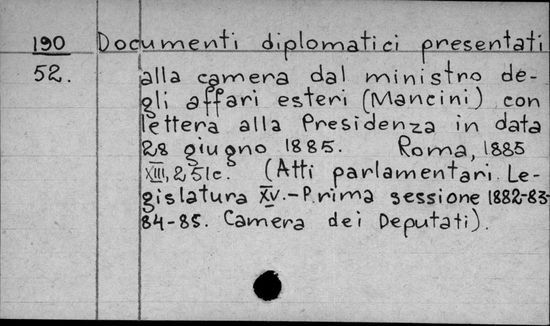 190 Documenti diplomatici presentati
52. alla camera dal ministro de-
gli affari esteri (Mancini) con
lettera alla Presidenza in data
28 giugno 1885. Roma, 1885
XIII, 251c. (Atti parlamentari. Le-
gislatura XV.-Prima sessione 1882-83-
84-85. Camera dei Deputati).